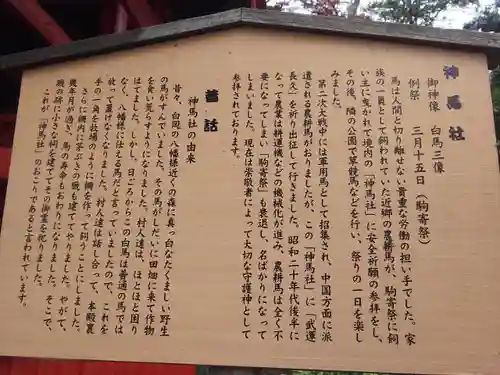 神馬社
御神像　白馬三像
例祭　三月十五日（駒寄祭）
馬は人間と切り離せない貴重な労働の担い手でした。家
族の一員として飼われていた近郷の農耕馬が、駒寄祭に飼
い主に曳かれて境内の「神馬社」に安全祈願の参拝をし、
その後、隣の公園で草競馬などを行い、祭りの一日を楽し
みました。
第二次大戦中には軍用馬として招集され、中国方面に派
遣される農耕馬がおりましたが、この「神馬社」に「武運
長久」を祈り出征して行きました。昭和二十年代後半に
なって農業は耕運機などの機械化が進み、農耕馬は全く不
要になってしまい「駒寄祭」も衰退し、名ばかりになって
しまいました。現在は崇敬者によって大切な守護神として
参拝されております。
昔話
神馬社の由来
昔々、白岡の八幡様近くの森に真っ白なたくましい野生
の馬がすんでいました。その馬がしだいに田畑に来て作物
を食い荒らすようになりました。村人達は、ほとほと困り
はてました。しかし、日ごろからこの白馬は普通の馬では
なく、八幡様に仕える馬だと言っていましたので、これを
放って置けなくなりました。村人達は話し合って、本殿裏
手の一角を牧場のように柵を作って飼うことにしました。
さらに柵内に笹ぶきの廐も建ててやりました。やがて、
幾年月が過ぎ、馬の寿命もおわりになりました。そこで、
廐の跡に小さな祠を建ててその御霊を祀りました。
これが「神馬社」のおこりであると言われています。